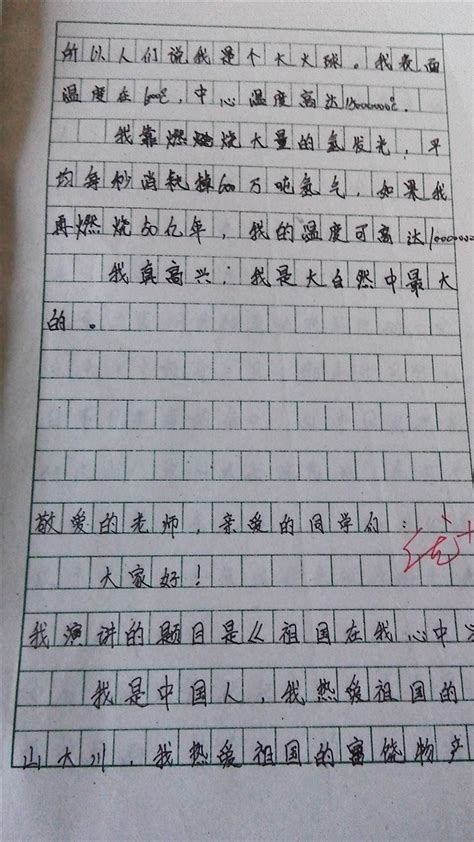 所以人们说我是个大火球。我表面
温度在6000℃,中心温度高达15000000℃.
我靠燃烧大量的氢发光,平
均每秒消耗掉600万吨氢气,如果我
再燃烧50亿年,我的温度可高达1000000
我真高兴;我是大自然中最大
的。
敬爱的老师,亲爱的同学们:
优+
大家好!
我演讲的题目是《祖国在我心中
我是中国人,我热爱祖国的
山大川.我热爱祖国的富饶物产